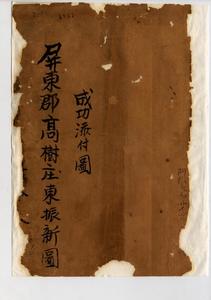 成功添付圖
屏東郡高樹庄東振新圖